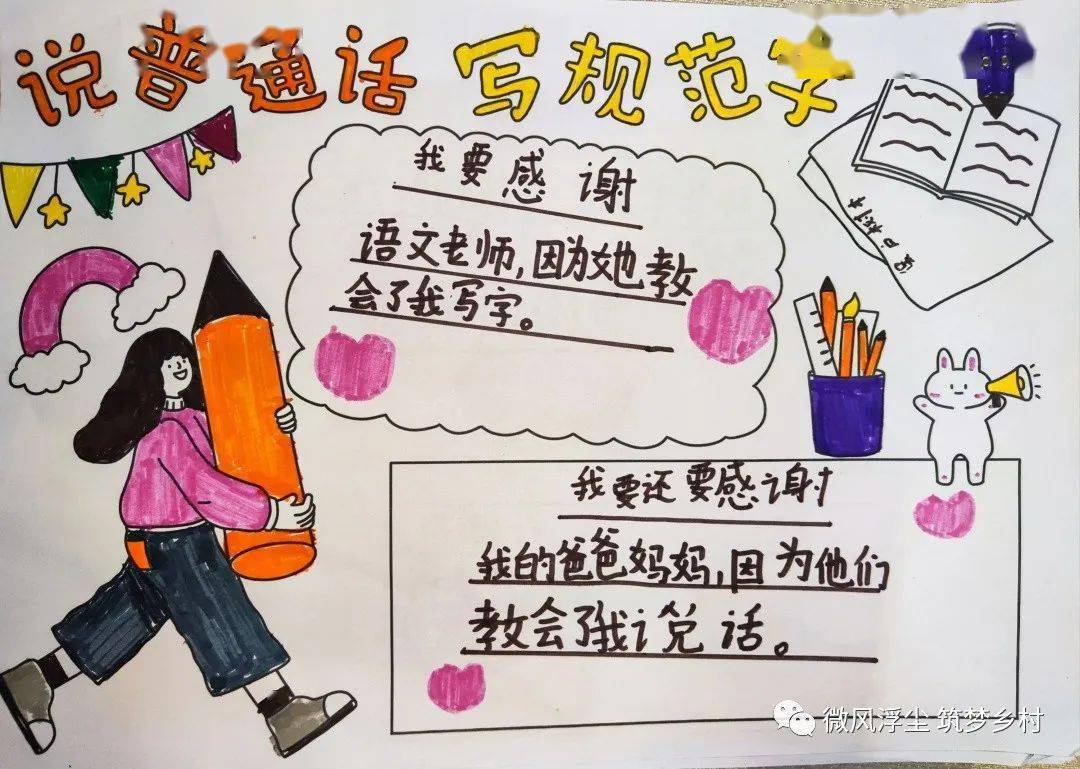 说普通话 写规范字
我要感谢
语文老师,因为她教
会了我写字。
我要还要感谢
我的爸爸妈妈,因为他们
教会了我说话。
微风浮尘 筑梦乡村